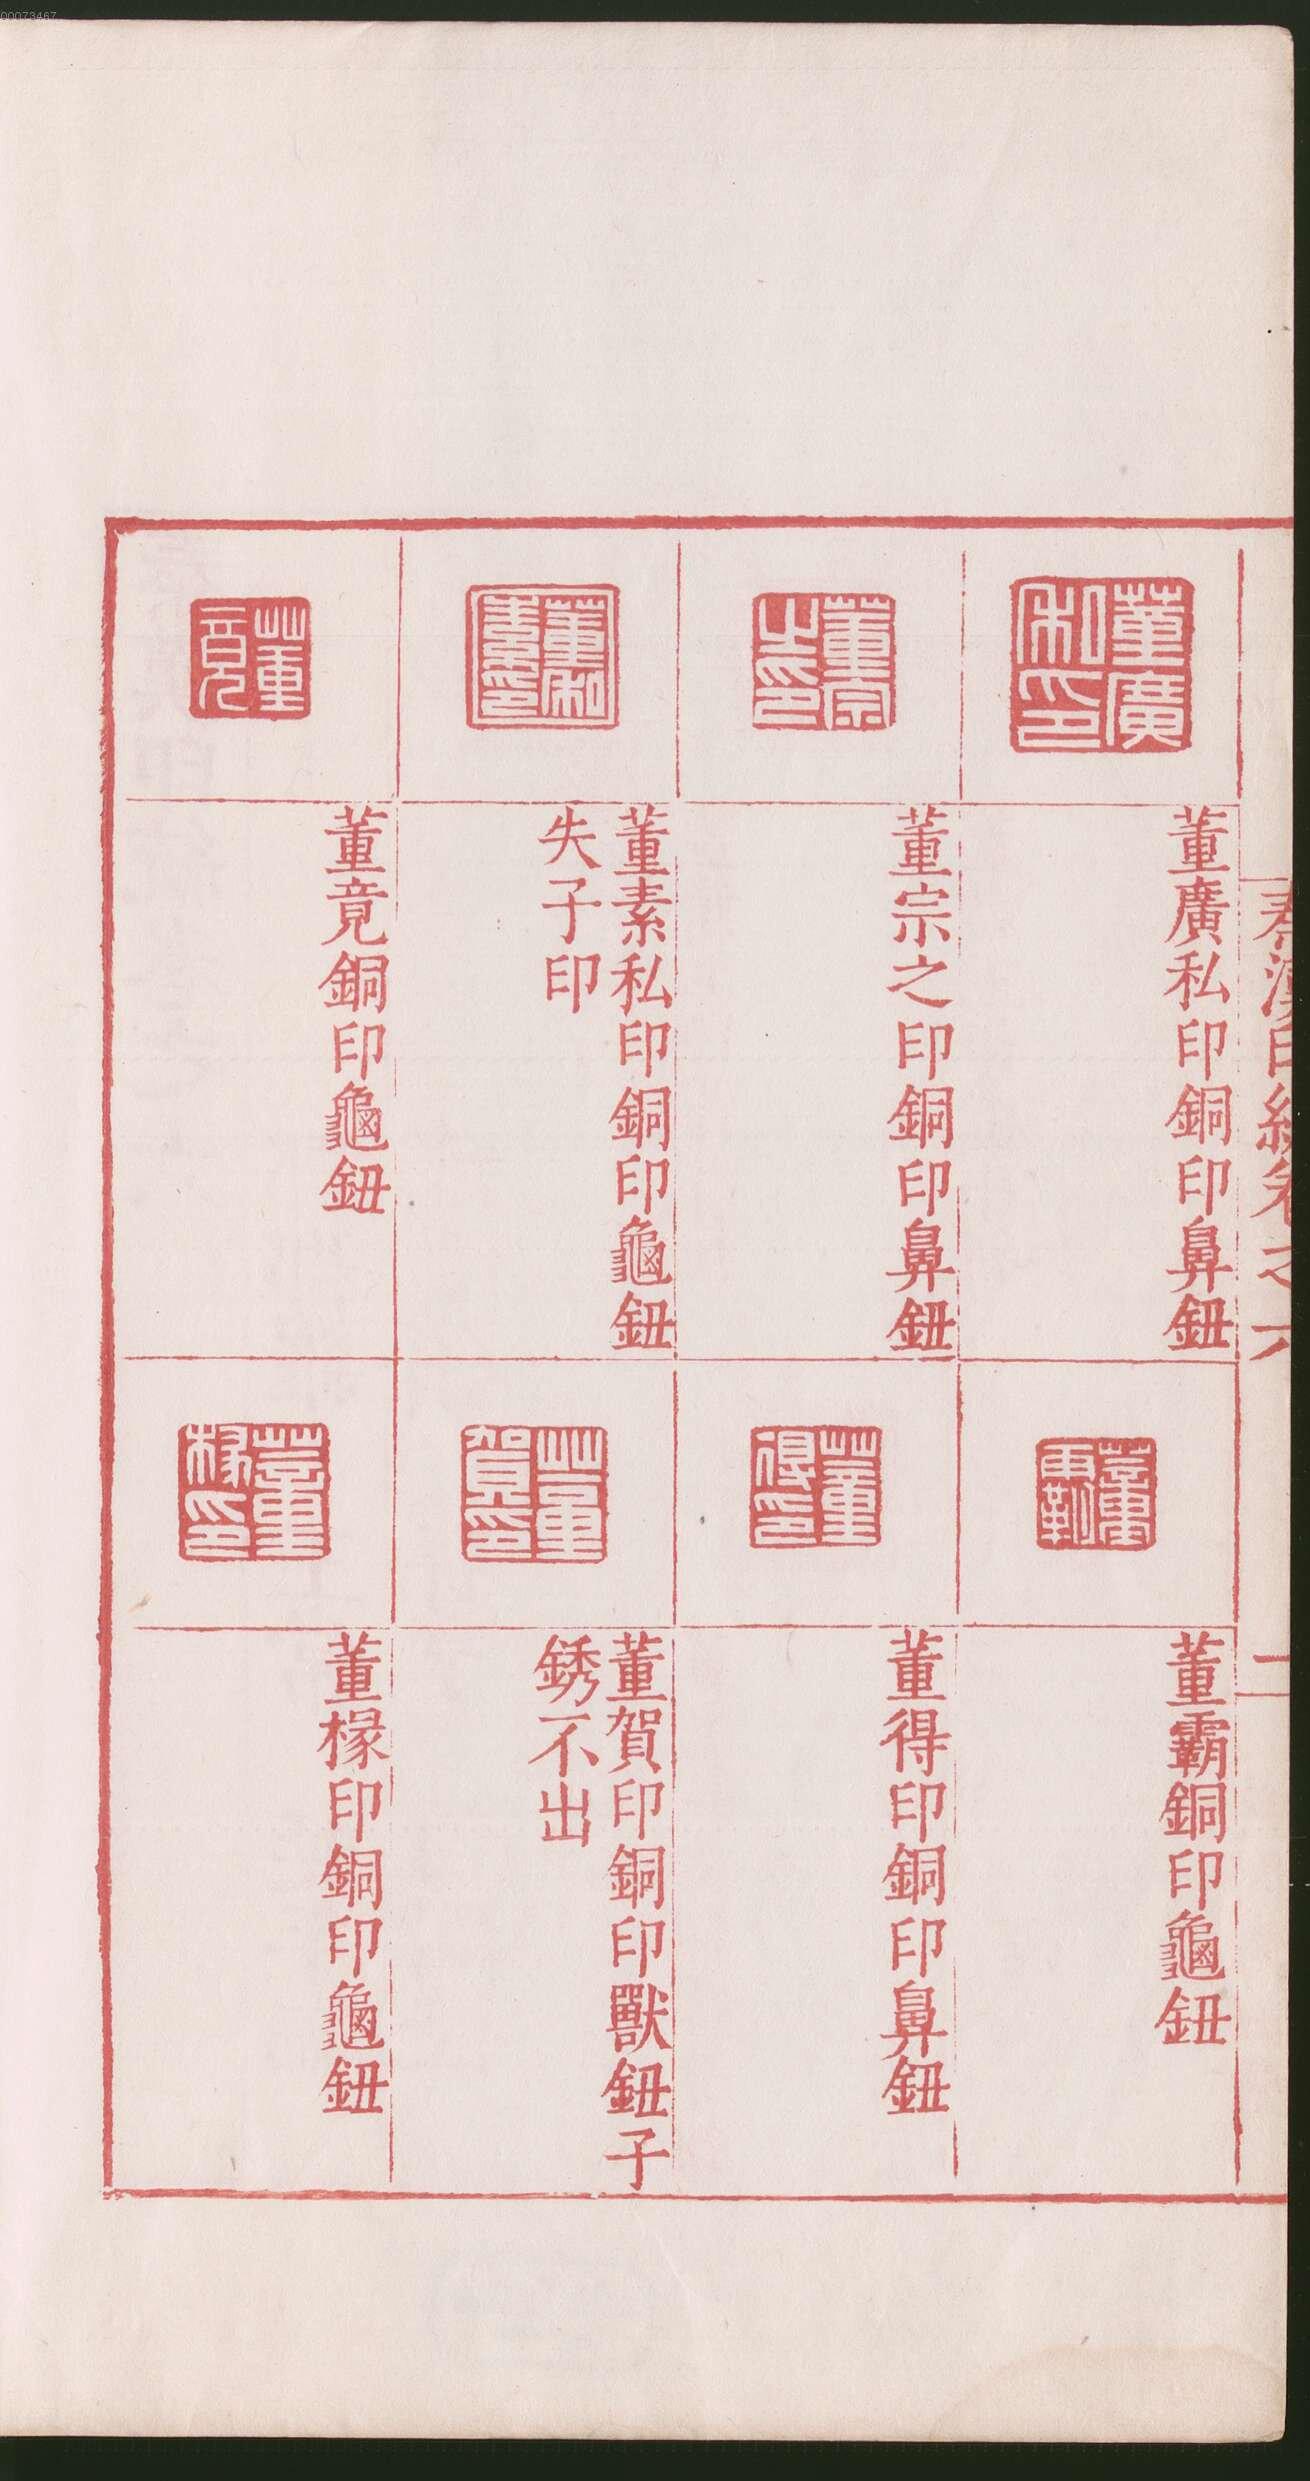 00073467
秦漢印統卷之六
二
董廣私印
董廣私印銅印鼻鈕
董宗之印
董宗之印銅印鼻鈕
董素私印
董素私印銅印龜鈕
失子印
董竟
董竟銅印龜鈕
董霸
董霸銅印龜鈕
董得印
董得印銅印鼻鈕
董賀印
董賀印銅印獸鈕子
銹不出
董椽印
董椽印銅印龜鈕